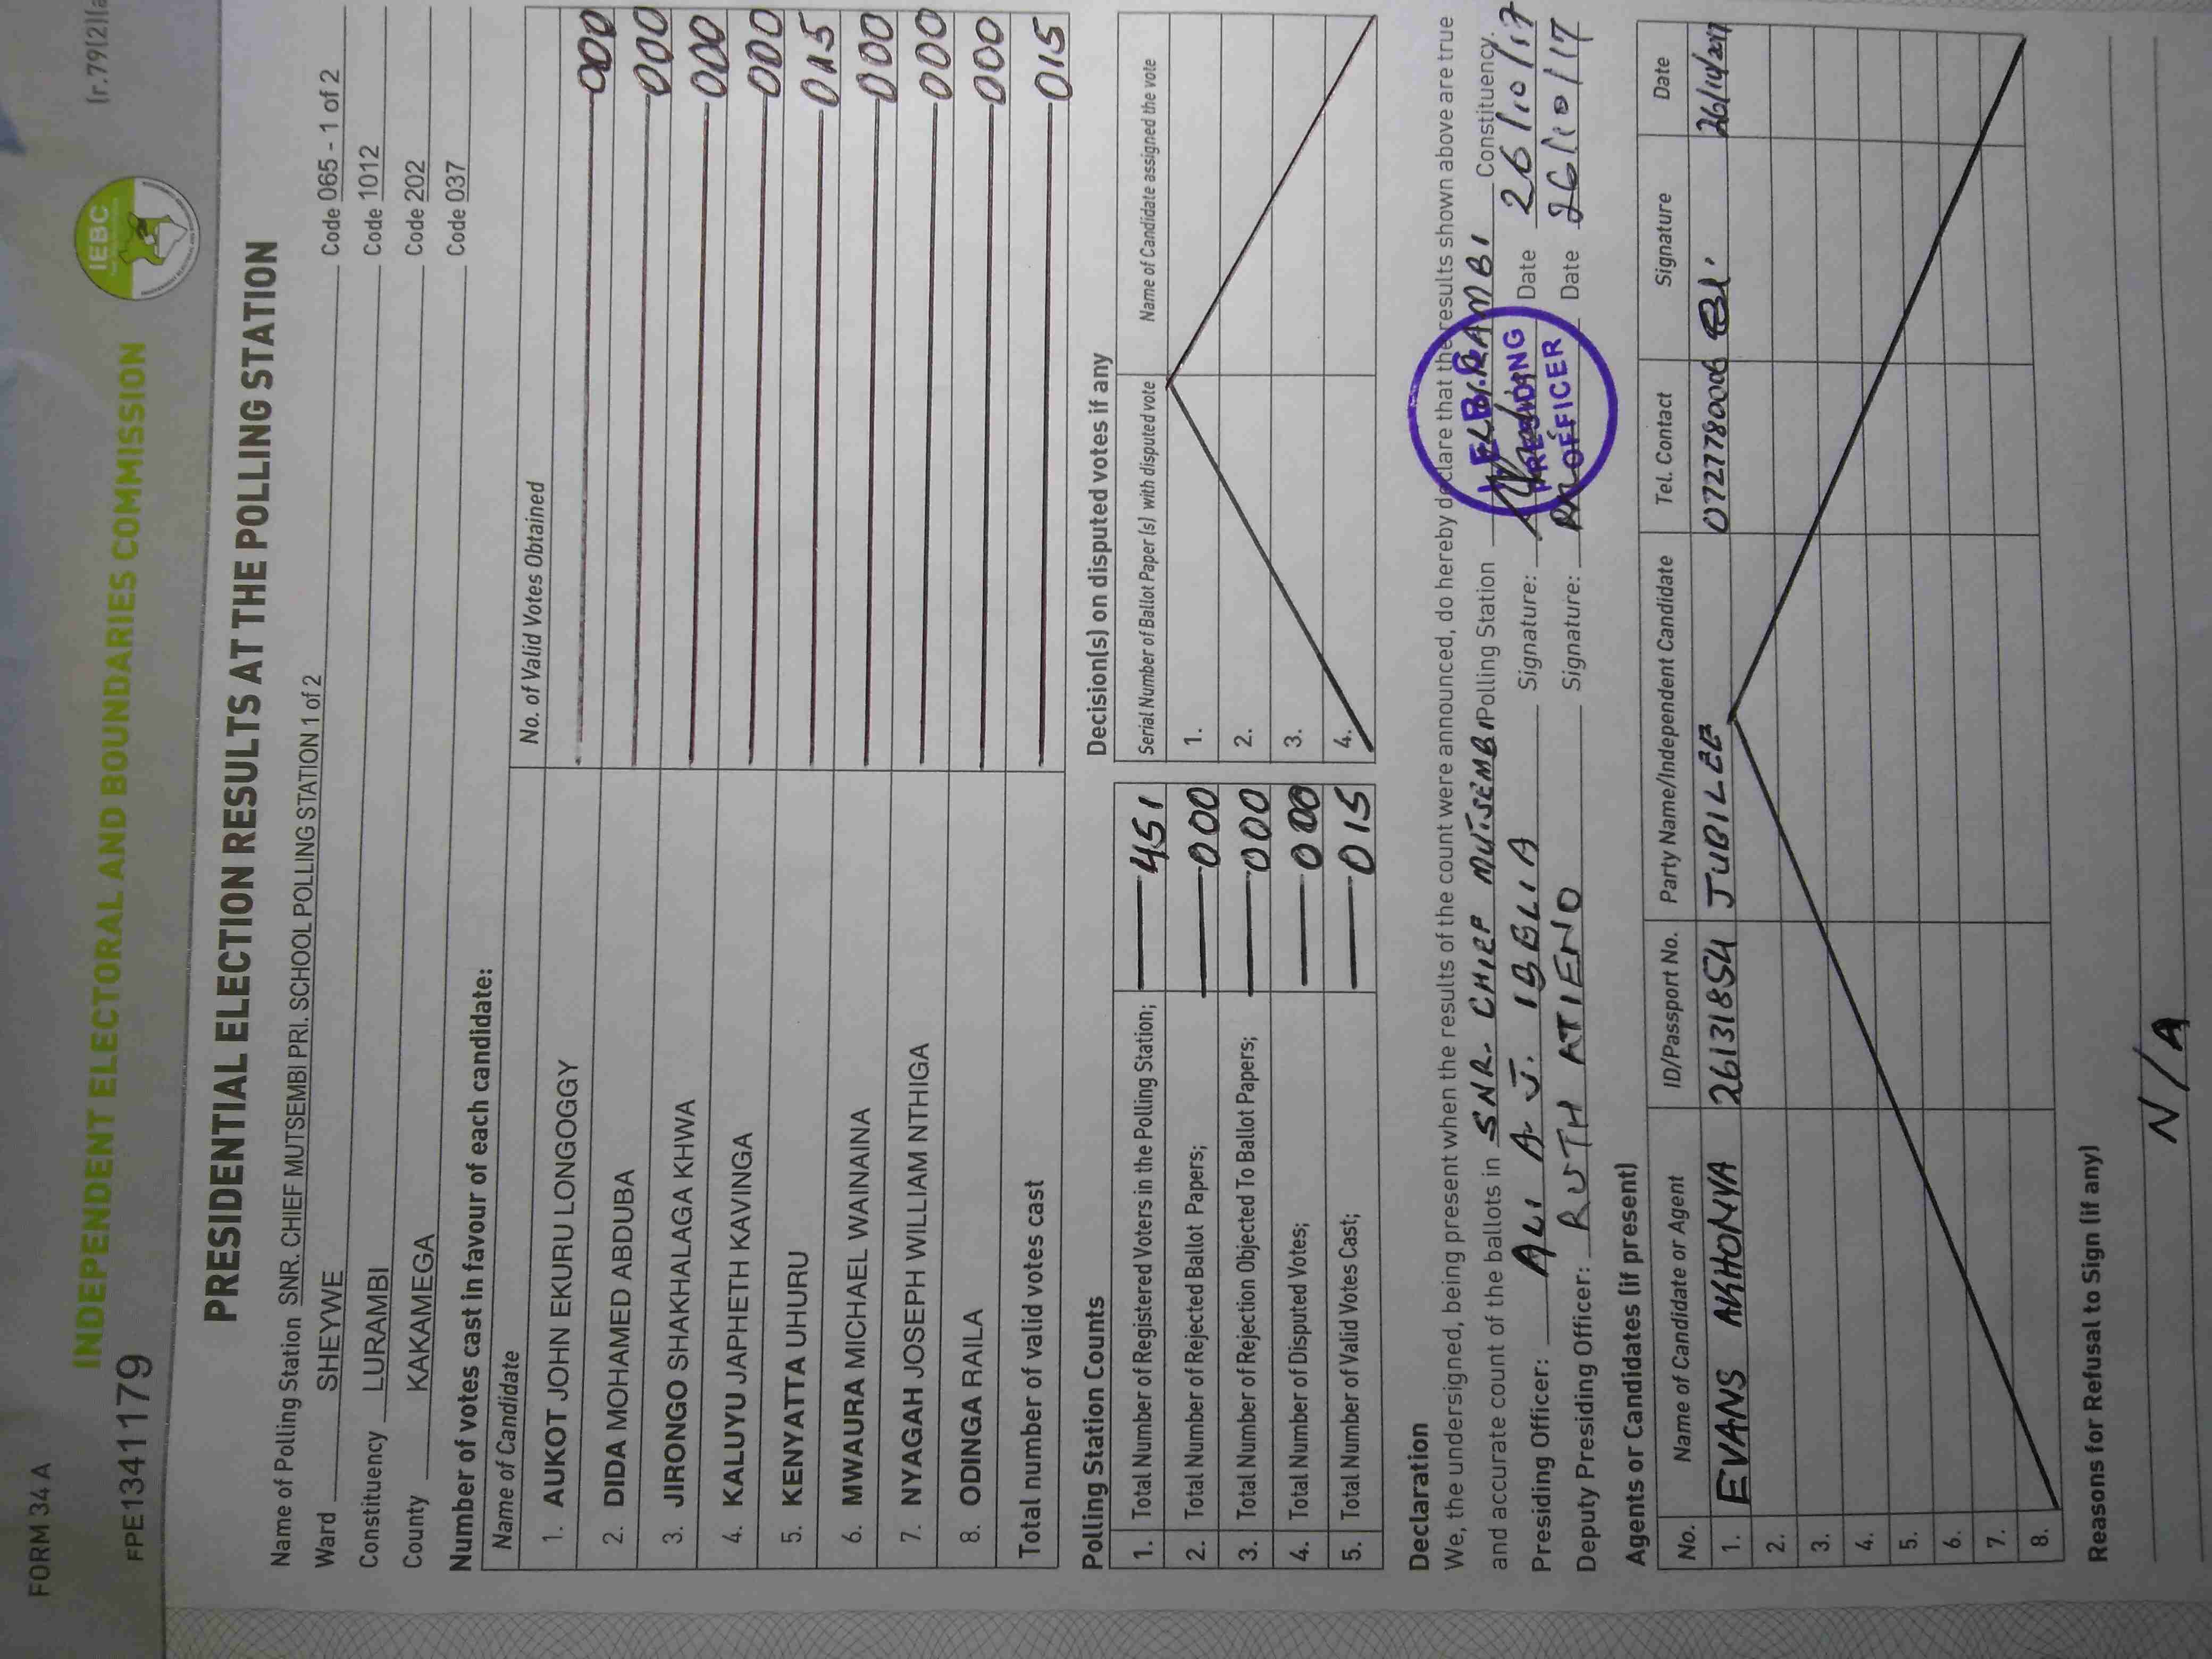 FORM 34 A
(r.79(2)(a
INDEPENDENT ELECTORAL AND BOUNDARIES COMMISSION
IEBC
FPE1341179
PRESIDENTIAL ELECTION RESULTS AT THE POLLING STATION
Name of Polling Station SNR. CHIEF MUTSEMBI PRI. SCHOOL POLLING STATION 1 of 2 Code 065 - 1 of 2
Ward SHEYWE Code 1012
Constituency LURAMBI Code 202
County KAKAMEGA Code 037
Number of votes cast in favour of each candidate:
Name of Candidate No. of Valid Votes Obtained
1. AUKOT JOHN EKURU LONGOGGY 000
2. DIDA MOHAMED ABDUBA 000
3. JIRONGO SHAKHALAGA KHWA 000
4. KALUYU JAPHETH KAVINGA 000
5. KENYATTA UHURU 015
6. MWAURA MICHAEL WAINAINA 000
7. NYAGAH JOSEPH WILLIAM NTHIGA 000
8. ODINGA RAILA 000
Total number of valid votes cast 015
Polling Station Counts
1. Total Number of Registered Voters in the Polling Station; 451
2. Total Number of Rejected Ballot Papers; 000
3. Total Number of Rejection Objected To Ballot Papers; 000
4. Total Number of Disputed Votes; 000
5. Total Number of Valid Votes Cast; 015
Decision(s) on disputed votes if any
Serial Number of Ballot Paper (s) with disputed vote Name of Candidate assigned the vote
1.
2.
3.
4.
Declaration
We, the undersigned, being present when the results of the count were announced, do hereby declare that the results shown above are true
and accurate count of the ballots in SNR. CHIEF MUTSEMBI Polling Station LURAMBI Constituency.
Presiding Officer: ALI A. J. IBBLIA Signature: Date 26/10/17
Deputy Presiding Officer: RUTH ATIENO Signature: Date 26/10/17
I.E.B.C
PRESIDING
OFFICER
Agents or Candidates (if present)
No. Name of Candidate or Agent ID/Passport No. Party Name/Independent Candidate Tel. Contact Signature Date
1. EVANS AKHONYA 26131854 JUBILEE 0727780006 26/10/2017
2.
3.
4.
5.
6.
7.
8.
Reasons for Refusal to Sign (if any)
N/A